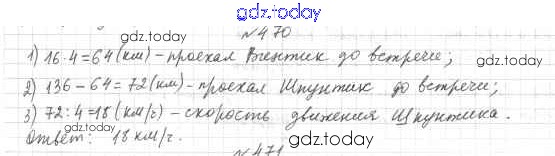 gdz.today
№470
gdz.today
1) 16·4=64(км)-проехал Винтик до встречи;
2) 136-64=72(км)-проехал Шпунтик до встречи;
3) 72:4=18(км/ч)-скорость движения Шпунтика.
gdz.today
gdz.today
Ответ: 18 км/ч.
gdz.today
№471